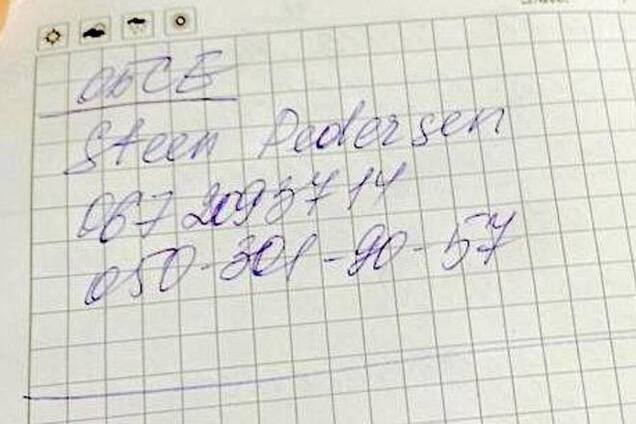 ОБСЕ
Steen Pedersen
067 2093714
050-301-90-57